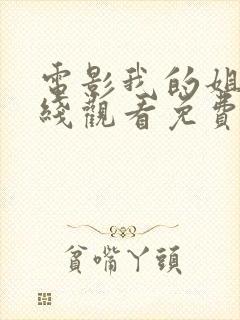 電影我的姐
綫觀看免費
貧嘴丫頭